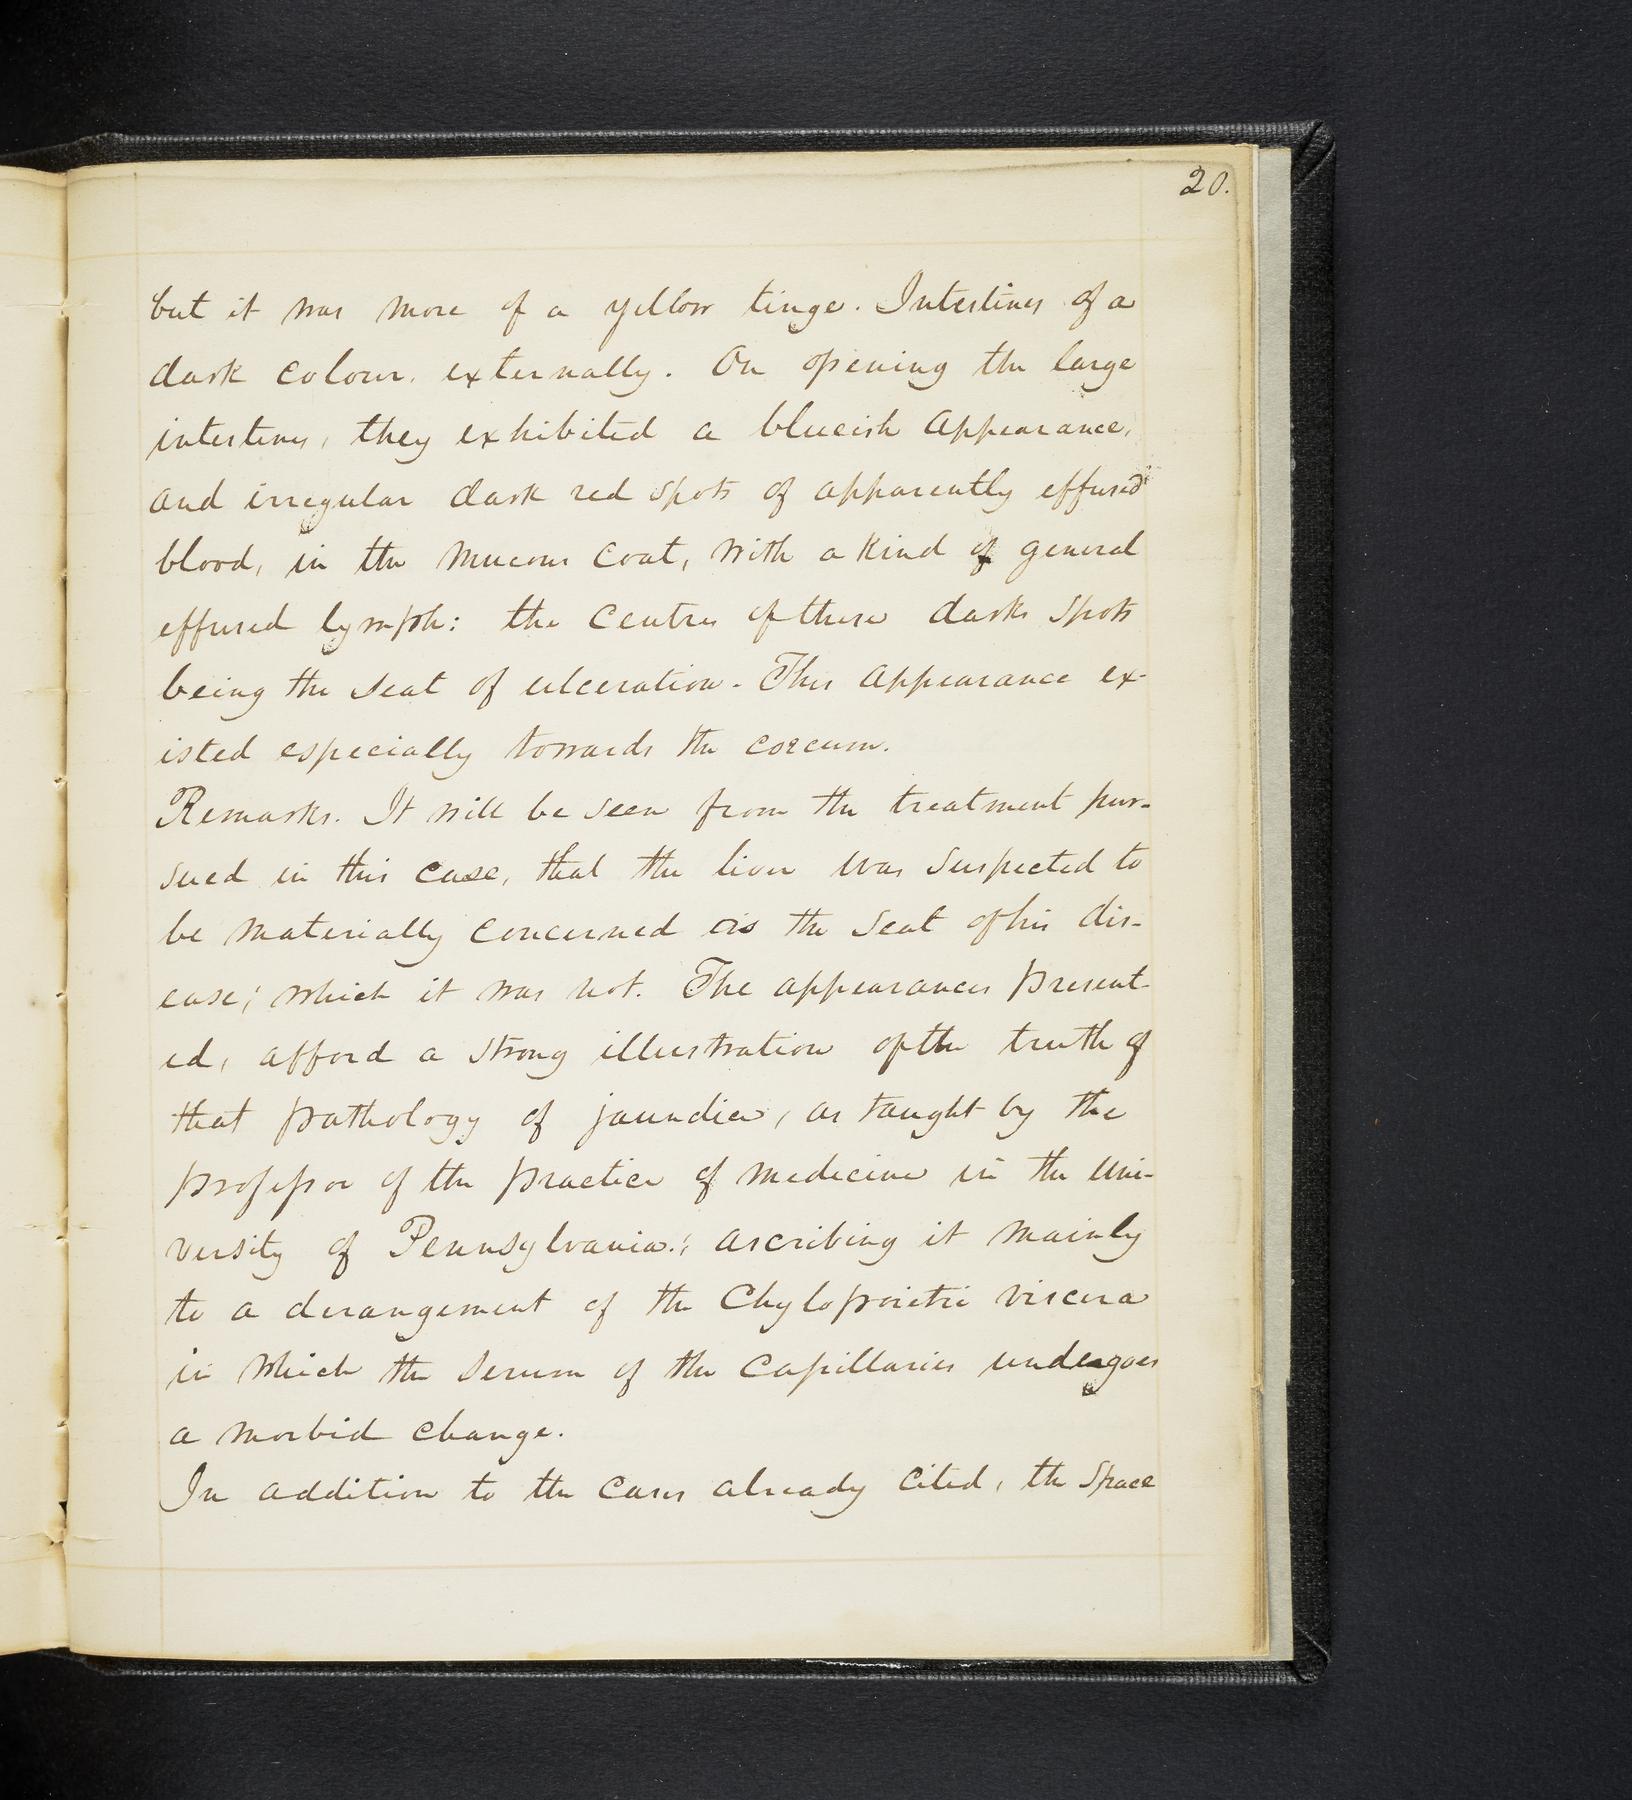 20.
but it was more of a yellow tinge. Intestines of a
dark colour. externally. On opening the large
intestines, they exhibited a blueish appearance,
and irregular dark red spots of apparently effused
blood, in the mucous coat, with a kind of general
effused lymph: the centres of these dark spots
being the seat of ulceration. This appearance ex-
isted especially towards the coecum.
Remarks. It will be seen from the treatment pur-
sued in this case, that the liver was suspected to
be materially concerned as the seat of his dis-
ease; which it was not. The appearances present-
ed, afford a strong illustration of the truth of
that pathology of jaundice, as taught by the
professor of the practice of medicine in the Uni-
versity of Pennsylvania.; ascribing it mainly
to a derangement of the Chylopoietic viscera
in which the serum of the capillaries undergoes
a morbid change.
In addition to the cases already cited, the space